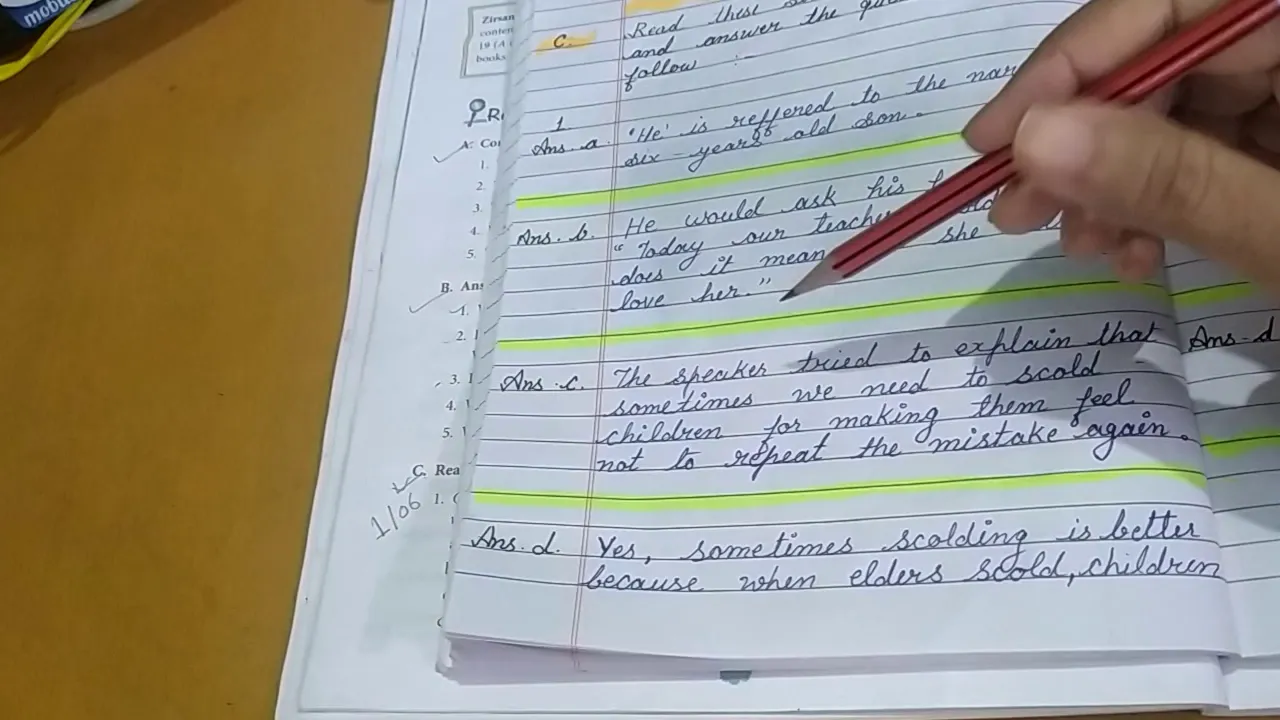 mobi
Zirsan
conten
19 (A
books
C. Read these
and answer the
follow :-
1
Ans. a. 'He' is reffered to the nar
six-years old son.
Ans. b. He would ask his
"Today our teacher
does it mean she
love her."
Ans. c. The speaker tried to explain that
sometimes we need to scold
children for making them feel
not to repeat the mistake again.
Ans. d. Yes, sometimes scolding is better
because when elders scold, children
Ans. d
A. Co
1.
2.
3.
4.
5.
B. Ans
1.
2.
3.
4.
5.
C. Rea
1.
1/06